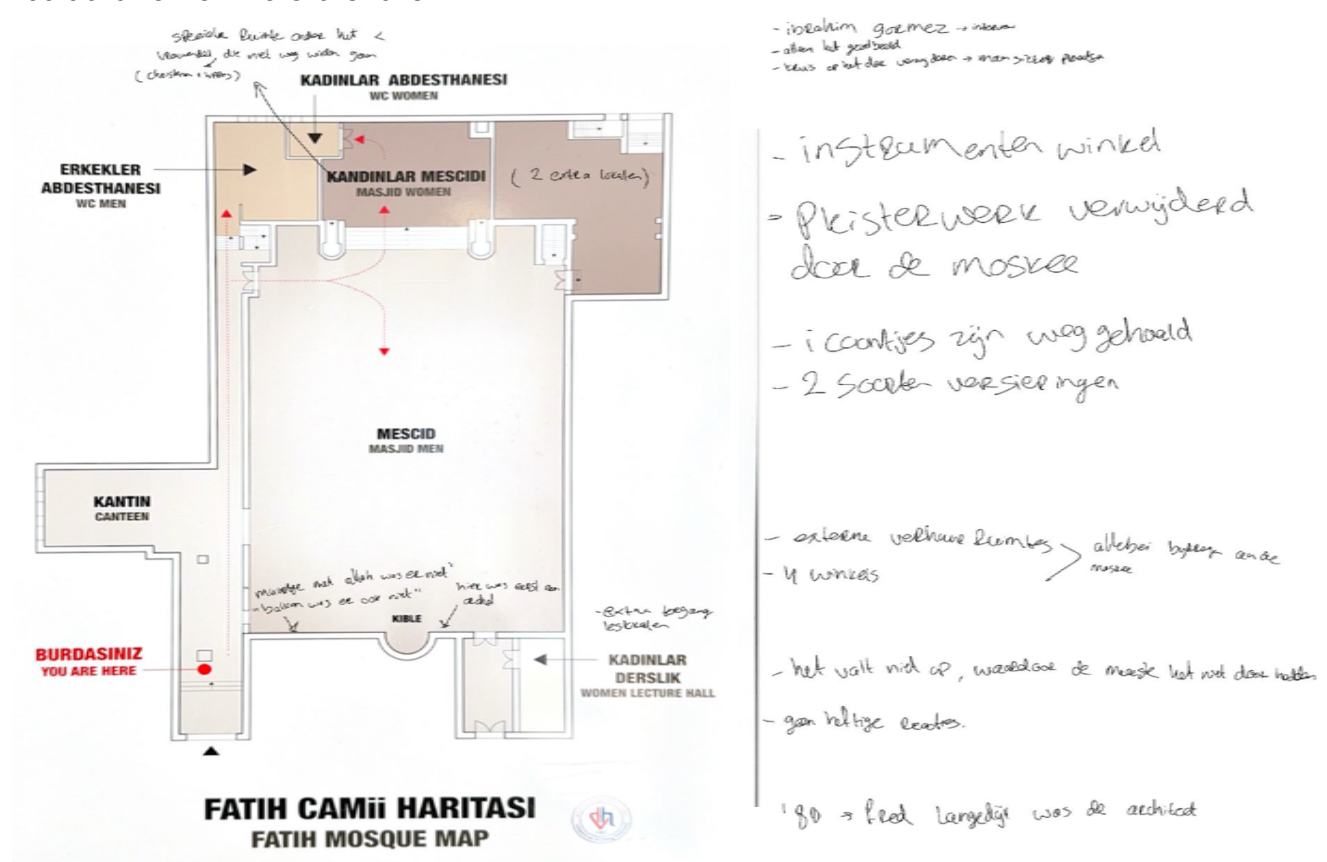 speciale Ruimte onder het <
die niet weg wilden gaan
KADINLAR ABDESTHANESI
WC WOMEN
ERKEKLER
ABDESTHANESI
WC MEN
KANDINLAR MESCIDI
MASJID WOMEN
(2 extra localen)
MESCID
MASJID MEN
KANTIN
CANTEEN
muurtje met allah was er niet"
"balkon was er ook niet"
hier was eerst een
KIBLE
BURDASINIZ
YOU ARE HERE
- extra toegang
leslokalen
KADINLAR
DERSLIK
WOMEN LECTURE HALL
FATIH CAMii HARITASI
FATIH MOSQUE MAP
- ibrahim gormez →
- alleen het
- kruis op het dak →
- instrumenten winkel
- Pleisterwerk verwijderd
door de moskee
- icoontjes zijn weg gehaald
- 2 Soorten versieringen
- externe verhuur Ruimtes
- 4 winkels
allebei aan de
moskee
- het valt niet op, waardoor de meeste het niet door hadden
- geen heftige reacties.
'80 → Fred Langedijk was de architect